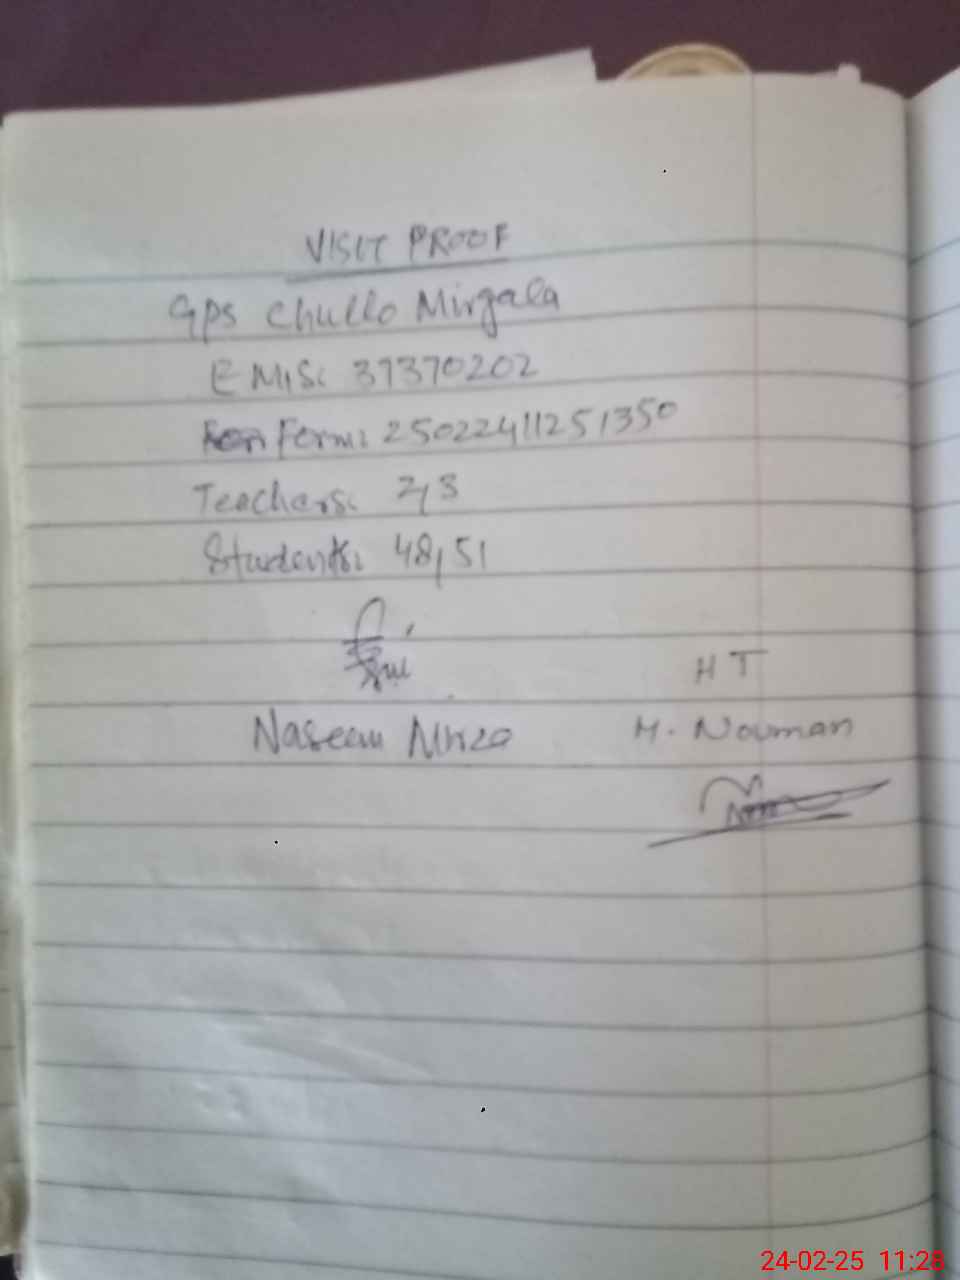 VISIT PROOF
GPS Chullo Mirgala
EMIS: 37370202
Form: 25022411251350
Teachers: 2,3
Students: 48,51
HT
Naseem Mirza
M. Nouman
24-02-25 11:28